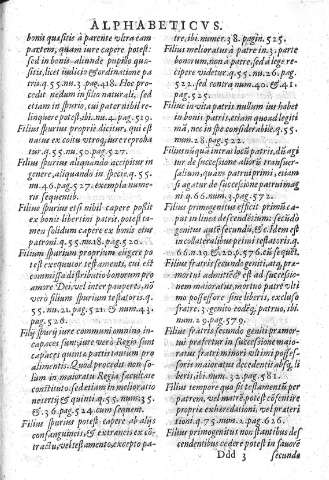 ALPHABETICVS.
bonis quæsitis à parente vltra eam
partem, quam iure capere potest:
sed in bonis aliunde pupillo quæ-
sitis, licet iudicis & ordinatione pa
tris. q.55. nu.3. pag.418. Hoc pro-
cedit nedum in filio naturale, sed
etiam in spurio, cui pater nihil re-
linquere potest. ibi. nu.4. pag.519.
Filius spurius proprie dicitur, qui est
natus ex coitu vtroq; iure reproba
to. q.55. nu.50. pag.527.
Filius spurius aliquando accipitur in
genere, aliquando in specie. q.55.
nu.46. pag.527. exempla nume-
ris sequentib.
Filius spurius etsi nihil capere possit
ex bonis libertini patris, potest ta-
men solidum capere ex bonis eius
patroni. q.55. nu.18. pag.520.
Filium spurium proprium eligere po
test exequutor testamenti, cui est
commissa distributio bonorum pro
amore Dei, vel inter pauperes, nō
verò filium spurium testatoris. q.
55. nu.21. pag.521. & num.43.
pag.526.
Filij spurij iure communi omnino in-
capaces sunt; iure verò Regio sunt
capaces quinta partis tantum pro
alimentis. Quod procedit non so-
lum in maioratu Regia facultate
constituto, sed etiam in meliorato
tertij & quinti q.55. num.35.
& 36. pag.524. cum sequent.
Filius spurius potest capere ab alijs
consanguineis, & extraneis ex cō-
tractu, vel testamento, excepto pa-
tre. ibi. numer.38. pagin.525.
Filius melioratus à patre in 3. parte
bonorum, non à patre, sed à lege re-
cipere videtur. q.55. nu.26. pag.
522. sed contra num.40. & 41.
pag.525.
Filius in vita patris nullum ius habet
in bonis patris, etiam quoad legiti
mā, nec in spe considerabile. q.55.
num.28. pag.522.
Filius nunquā intrat locū patris, dū agi
tur de successione aliorū transuer-
salium, quam patrui primi, etiam
si agatur de successione patrui magni
q.66. num.3. pag.572.
Filius primogenitus efficit primū ca-
put in linea descendētium: secūdò
genitus aūt secundū, & c. Idem est
in collateralibus primi testatoris. q.
66. n.19. & 20. pag.576. cū sequēt.
Filius fratris secundo geniti, an, præ-
mortui admittēd' est ad successio-
nem maioratus, mortuo patre vlti
mo possessore sine liberis, excluso
fratre, 3. genito eodēq; patruo, ibi.
num.29. pag.579.
Filius fratris secundo geniti præmor-
tui præfertur in successione maio-
ratus fratri minori vltimi posses-
soris maioratus decedentis absq; li
beris. ibi. num.32. pag.581.
Filius tempore quo sit testamentū per
patrem, vel matrē, potest cōsentire
propria exheredationi, vel præteri
tioni. q.75. num.2. pag.626.
Filius primogenitus non constantibus des-
cendentibus cedere potest in fauorē
Ddd 3 secundo